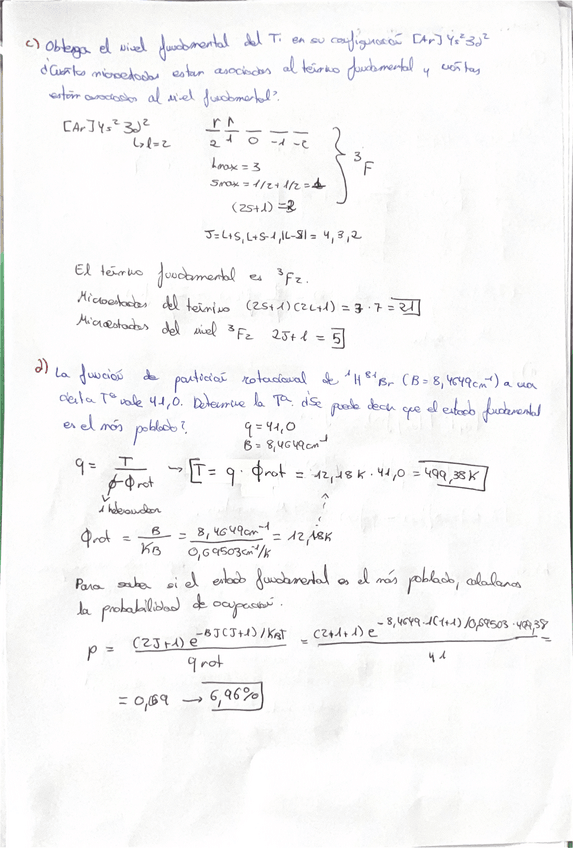 c) Obtenga el nivel fundamental del Ti en su configuración [Ar]4s²3d²
¿Cuántos microestados estan asociados al término fundamental y cuántos
están asociados al nivel fundamental?
[Ar]4s²3d²
↳ l=2
↑ ↑ _ _ _
2 1 0 -1 -2
Lmax = 3
Smax = 1/2 + 1/2 = 1
(2S+1) = 3
³F
J = L+S, L+S-1, |L-S| = 4, 3, 2
El término fundamental es ³F₂.
Microestados del término (2S+1)(2L+1) = 3 · 7 = 21
Microestados del nivel ³F₂ 2J+1 = 5
d) La función de partición rotacional de ¹H⁸¹Br (B = 8,4649cm⁻¹) a una
cierta Tª vale 41,0. Determine la Tª. ¿Se puede decir que el estado fundamental
es el más poblado?
q = 41,0
B = 8,4649cm⁻¹
q = T / σ·Φrot → T = q · Φrot = 12,18K · 41,0 = 499,38K
1 heteronuclear
Φrot = B / KB = 8,4649cm⁻¹ / 0,69503cm⁻¹/K = 12,18K
Para saber si el estado fundamental es el más poblado, calculamos
la probabilidad de ocupación.
p = (2J+1) e^-BJ(J+1)/KBT / qrot = (2+1+1) e^-8,4649·1(1+1)/0,69503·499,38 / 41 =
= 0,069 → 6,96%